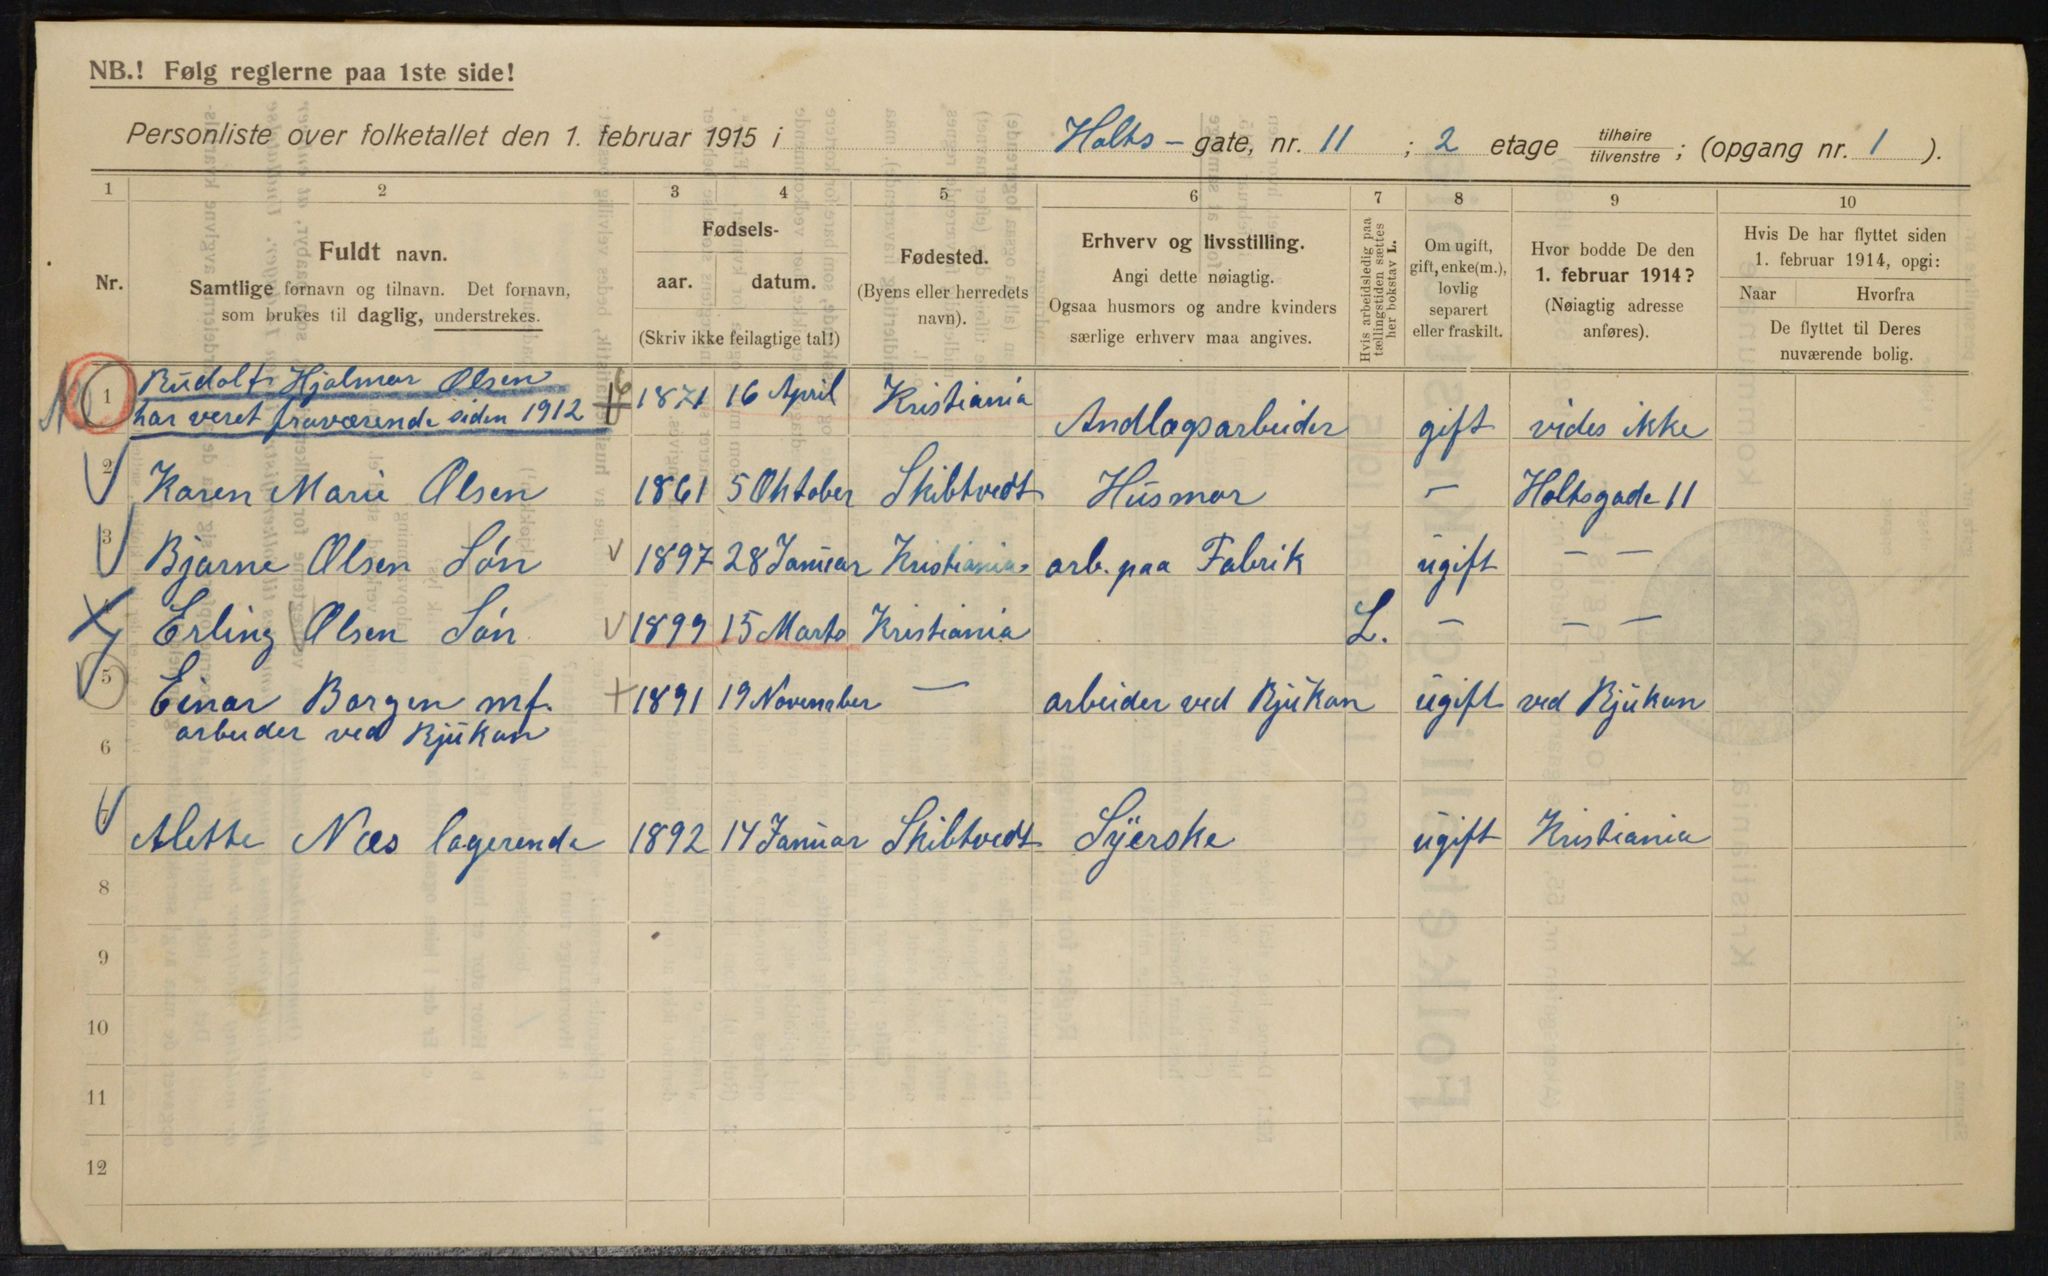 NB.! Følg reglerne paa 1ste side!
Personliste over folketallet den 1. februar 1915 i Holts - gate, nr. 11 ; 2 etage tilhøire / tilvenstre ; (opgang nr. 1 ).
1 2 3 4 5 6 7 8 9 10
Nr.
Fuldt navn.
Samtlige fornavn og tilnavn. Det fornavn,
som brukes til daglig, understrekes.
Fødsels-
aar. datum.
(Skriv ikke feilagtige tal!)
Fødested.
(Byens eller herredets
navn).
Erhverv og livsstilling.
Angi dette nøiagtig.
Ogsaa husmors og andre kvinders
særlige erhverv maa angives.
Hvis arbeidsledig paa
tællingstiden sættes
her bokstav L.
Om ugift,
gift, enke(m.),
lovlig
separert
eller fraskilt.
Hvor bodde De den
1. februar 1914?
(Nøiagtig adresse
anføres).
Hvis De har flyttet siden
1. februar 1914, opgi:
Naar Hvorfra
De flyttet til Deres
nuværende bolig.
1 Rudolf Hjalmar Olsen 1871 16 April Kristiania
har været fraværende siden 1912 Andlagsarbeider gift vides ikke
2 Karen Marie Olsen 1861 5 Oktober Skibtvedt Husmor — Holtsgade 11
3 Bjarne Olsen Søn 1897 28 Januar Kristiania arb. paa Fabrik ugift — —
4 Erling Olsen Søn 1899 15 Marts Kristiania L. — — —
5 Einar Borgen mf. 1891 19 November — arbeider ved Rjukan ugift ved Rjukan
6 arbeider ved Rjukan
7 Alette Næs logerende 1892 14 Januar Skibtvedt Syerske ugift Kristiania
8
9
10
11
12